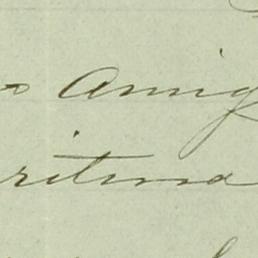 Amig
ritima